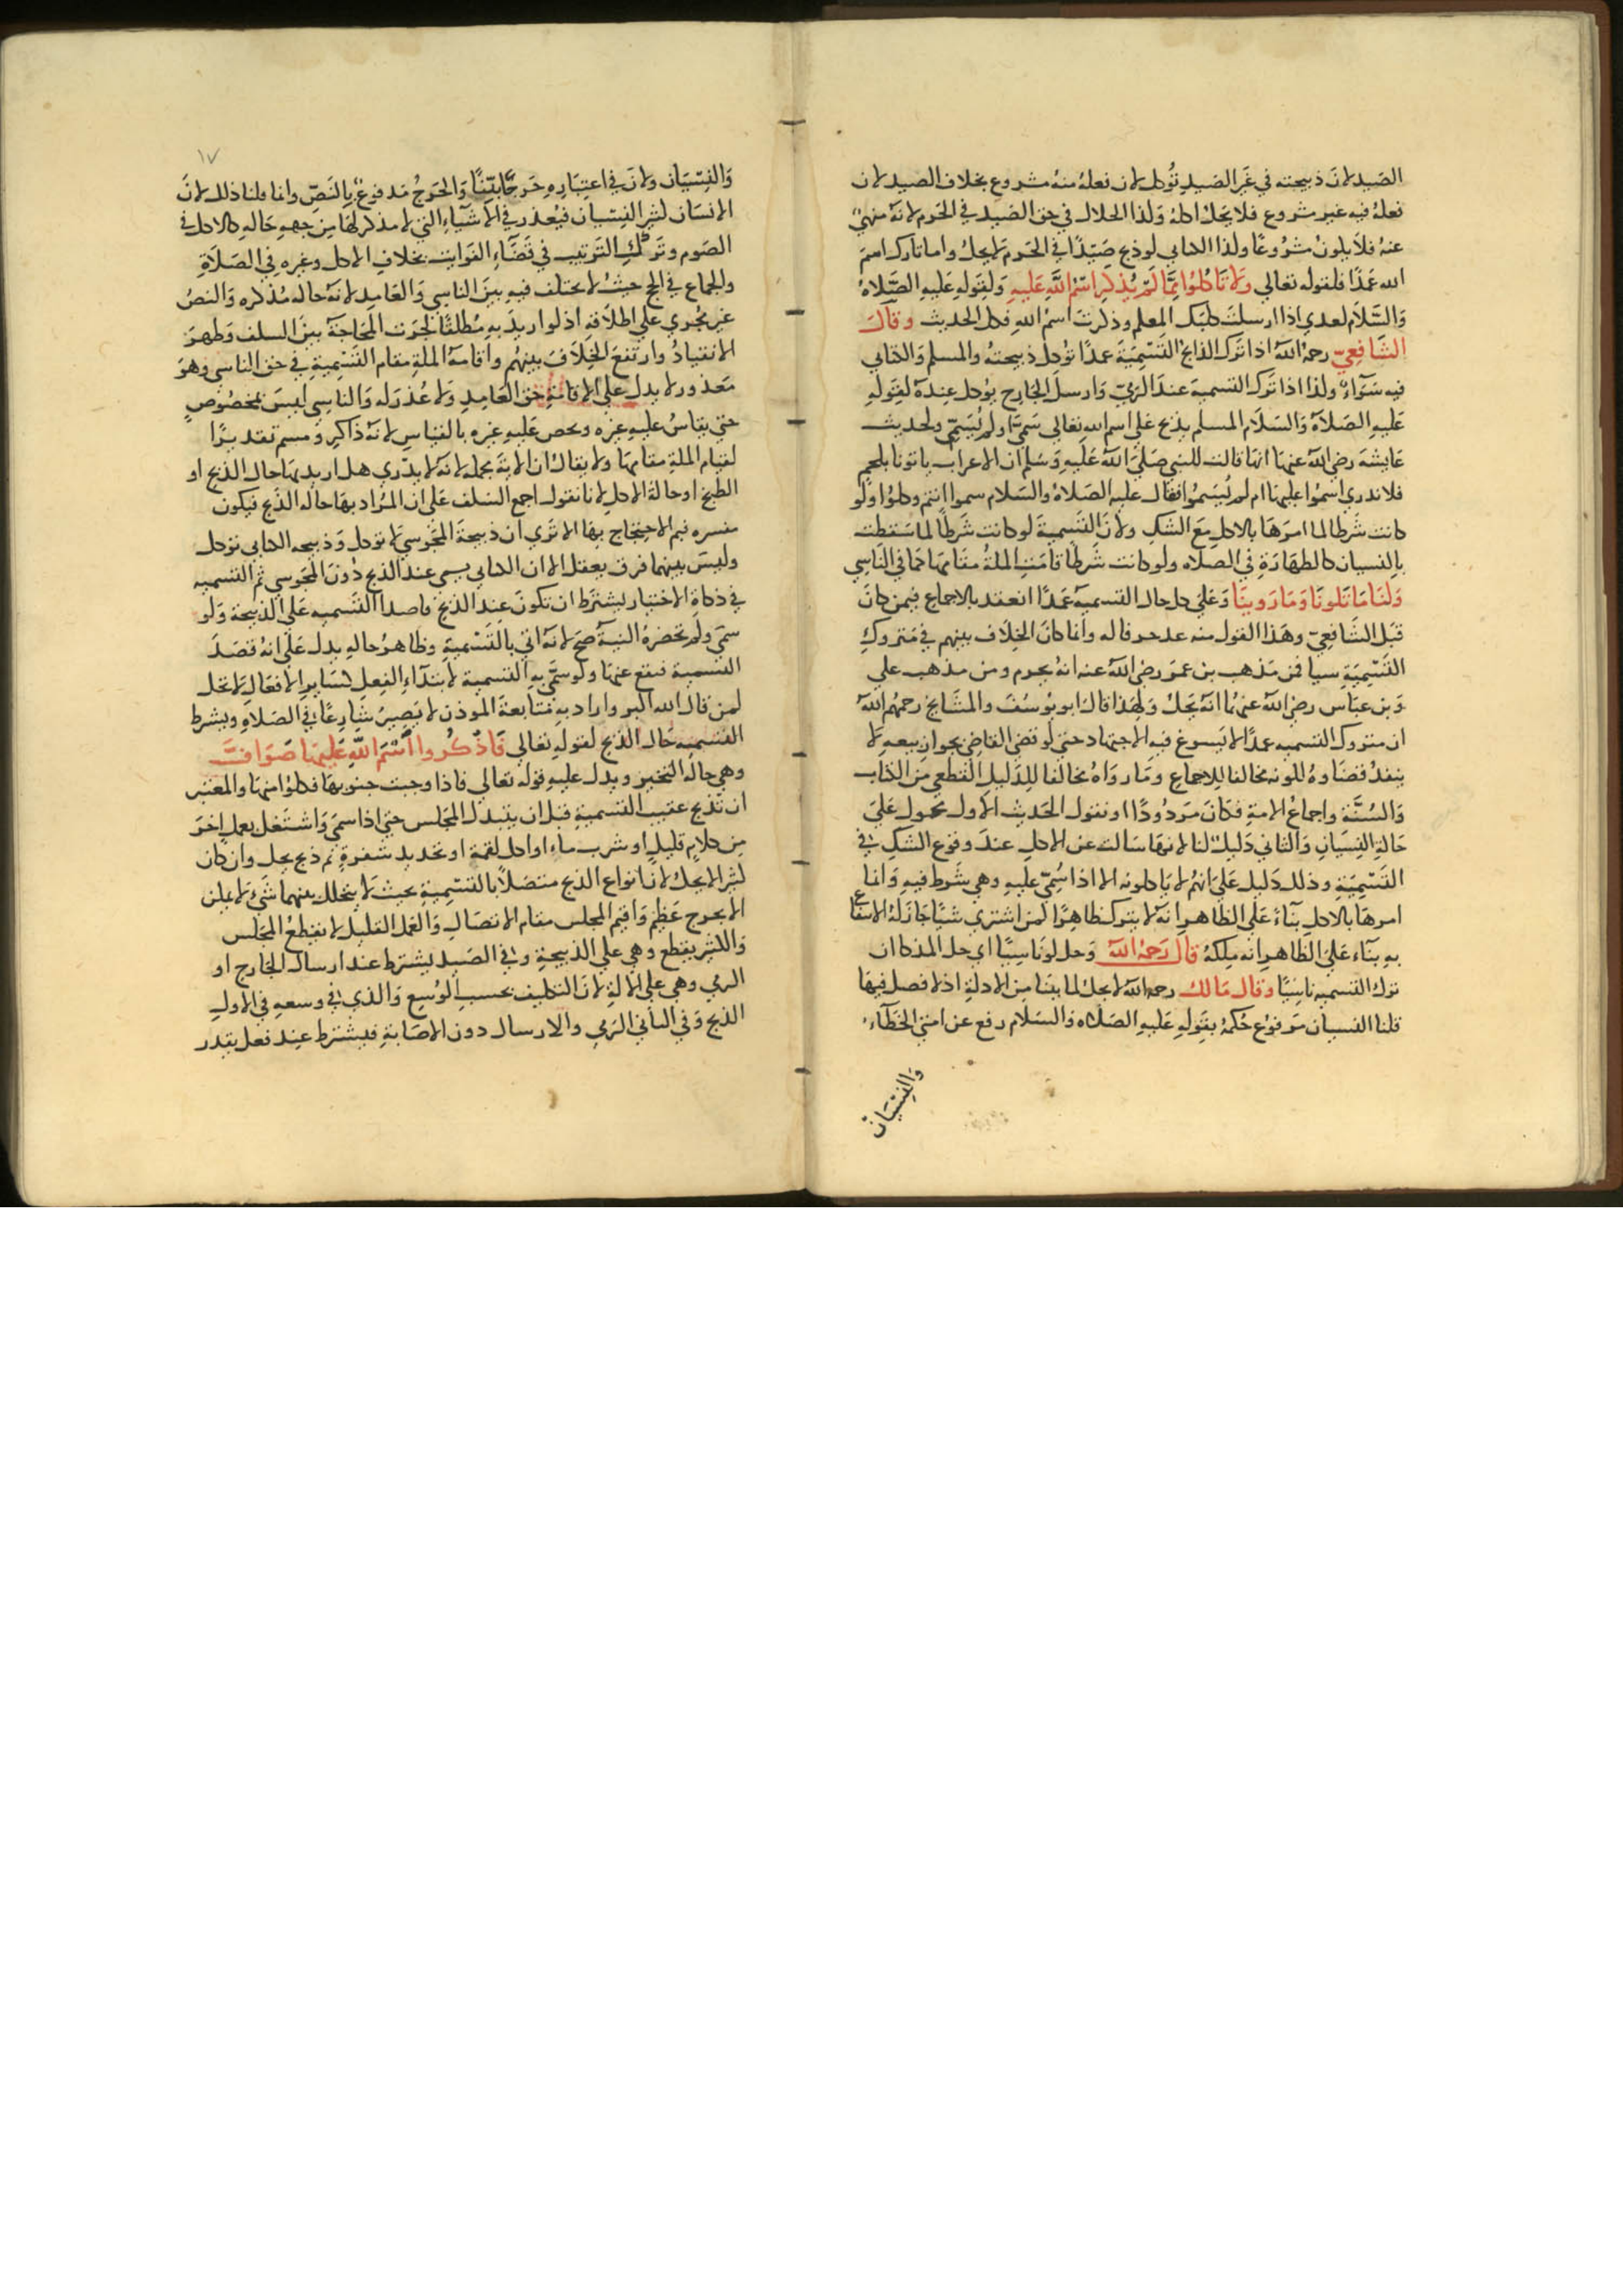 الصيد لان ذبيحته في غير الصيد تؤكل لان فعله منه مشروع بخلاف الصيد لان
فعله فيه غير مشروع فلا يحل اكله وكذا الحلال في حق الصيد في الحرم لانه منهي
عنه فلا يكون مشروعا وكذا الكتابي لو ذبح صيدا في الحرم لا يحل واما تارك اسم
الله عمدا فلقوله تعالى ولا تاكلوا مما لم يذكر اسم الله عليه ولقوله عليه الصلاة
والسلام لعدي اذا ارسلت كلبك المعلم وذكرت اسم الله فكل الحديث وقال
الشافعي رحمه الله اذا ترك الذابح التسمية عمدا تؤكل ذبيحته والمسلم والكتابي
فيه سواء وكذا اذا ترك التسمية عند الرمي وارسل الجارح يؤكل عنده لقوله
عليه الصلاة والسلام المسلم يذبح على اسم الله تعالى سمى او لم يسم ولحديث
عايشة رضي الله عنها انها قالت للنبي صلى الله عليه وسلم ان الاعراب ياتونا بلحم
فلا ندري اسموا عليها ام لم يسموا فقال عليه الصلاة والسلام سموا انتم وكلوا ولو
كانت شرطا لما امرها بالاكل مع الشك ولان التسمية لو كانت شرطا لما سقطت
بالنسيان كالطهارة في الصلاه ولو كانت شرطا قامت الملة مقامها كما في الناسي
ولنا ما تلونا وما روينا وعلى حال التسمية عمدا انعقد بالاجماع فيمن كان
قبل الشافعي وهذا القول منه عد خرقا له وانما كان الخلاف بينهم في متروك
التسمية سيا فمن مذهب بن عمر رضي الله عنه انه يحرم ومن مذهب علي
وبن عباس رضي الله عنهما انه يحل ولهذا قال ابو يوسف والمشايخ رحمهم الله
ان متروك التسميه عمدا لا يسوغ فيه الاجتهاد حتى لو قضى القاضي بجواز بيعه لا
ينفذ قضاوه لكونه مخالفا للاجماع وما رواه مخالفا للدليل القطعي من الكتاب
والسنة واجماع الامة فكان مردودا او نقول الحديث الاول محمول على
حالة النسيان والثاني دليل لنا لانها سالت عن الاكل عند وقوع الشك في
التسمية وذلك دليل على انهم لا ياكلونه الا اذا سمي عليه وهي شرط فيه وانما
امرها بالاكل بناء على الظاهر انه لا يترك ظاهرا كمن اشترى شيا جاز له الانتفاع
به بناء على الظاهر انه ملكه قال رحمه الله وحل لو ناسيا اي حل المذكى ان
ترك التسمية ناسيا وقال مالك رحمه الله لا يحل لما بينا من الادلة اذ لا فصل فيها
قلنا النسيان مرفوع حكمه بقوله عليه الصلاه والسلام رفع عن امتي الخطاء
والنسيان
١٧
والنسيان ولان في اعتباره حرجا بينا والحرج مدفوع بالنص وانما قلنا ذلك لان
الانسان كثير النسيان فيعذر في الاشياء التي لا مذكر لها من جهة حاله كالاكل في
الصوم وترك الترتيب في قضاء الفوايت بخلاف الاكل وغيره في الصلاة
والجماع في الحج حيث لا يختلف فيه بين الناسي والعامد لانه حاله مذكره والنص
غير مجري على اطلاقه اذ لو اريد به مطلقا لجرت المحاجة بين السلف وظهر
الانقياد وارتفع الخلاف بينهم واقامة الملة مقام التسمية في حق الناسي وهو
معذور لا يدل على الاقامة حق العامد ولا عذر له والناسي ليس بمخصوص
حتى يقاس عليه غيره ويخص عليه غيره بالقياس لانه ذاكر ومسم تقديرا
لقيام الملة مقامها ولا يقال ان الاية مجملة لانه لا يدري هل اريد بها حال الذبح او
الطبخ او حالة الاكل لانا نقول اجمع السلف على ان المراد بها حاله الذبح فيكون
مفسره فيم الاحتجاج بها الا ترى ان ذبيحة المجوسي لا تؤكل وذبيحه الكتابي تؤكل
وليس بينهما فرق يعقل الا ان الكتابي يسمي عند الذبح دون المجوسي ثم التسميه
في ذكاة الاختيار يشترط ان تكون عند الذبح قاصدا التسميه على الذبيحة ولو
سمى ولم تحضره النية صح لانه اتى بالتسمية وظاهر حاله يدل على انه قصد
التسمية فتقع عنها ولو سمى به التسمية لابتداء الفعل لساير الافعال لا تحل
كمن قال الله اكبر واراد به متابعة الموذن لا يصير شارعا في الصلاة ويشترط
التسميه حال الذبح لقوله تعالى فاذكروا اسم الله عليها صواف
وهي حاله النحر ويدل عليه قوله تعالى فاذا وجبت جنوبها فكلوا منها والمعتبر
ان تذبح عقيب التسمية قبل ان يتبدل المجلس حتى اذا سمى واشتغل بعمل اخر
من كلام قليل او شرب ماء او اكل لقمة او تحديد شفرة ثم ذبح يحل وان كان
كثيرا لا يحل لان انواع الذبح متصلا بالتسمية بحيث لا يتخلل بينهما شي لا يمكن
الا بحرج عظيم واقيم المجلس مقام الاتصال والعمل القليل لا يقطع المجلس
والكثير يقطع وهي على الذبيحة وفي الصيد يشترط عند ارسال الجارح او
الرمي وهي على الالة لان التكليف بحسب الوسع والذي في وسعه في الاول
الذبح وفي الثاني الرمي والارسال دون الاصابة فيشترط عند فعل يقدر